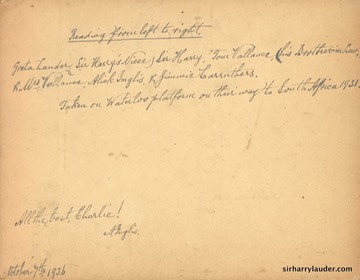 Reading from left to right.
Greta Lauder, Sir Harry's Niece, Sir Harry, Tom Vallance, (his Brother in Law,
& Mrs Vallance, Alick Inglis, & Jimmie Carruthers.
Taken on Waterloo platform on their way to South Africa 1931.
All the best, Charlie!
A Inglis.
October 7th 1936
sirharrylauder.com